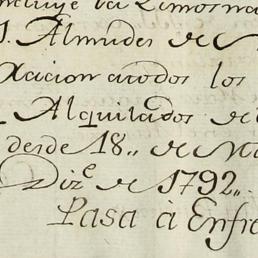 ncluye la Limosna
Almudes de
Racion atodos los
Alquilados de
desde 18,, de
Dizᵉ de 1792,,
Pasa à Enfre